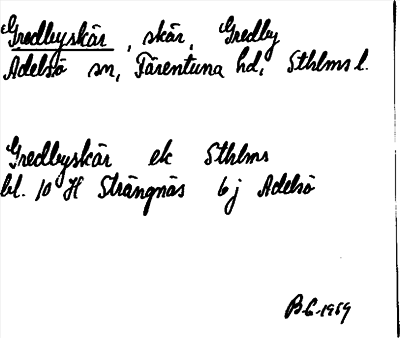 Gredbyskär, skär, Gredby
Adelsö sn, Färentuna hd, Sthlms l.
Gredbyskär ek Sthlms
bl. 10 H Strängnäs 6 j Adelsö
B.G. 1959